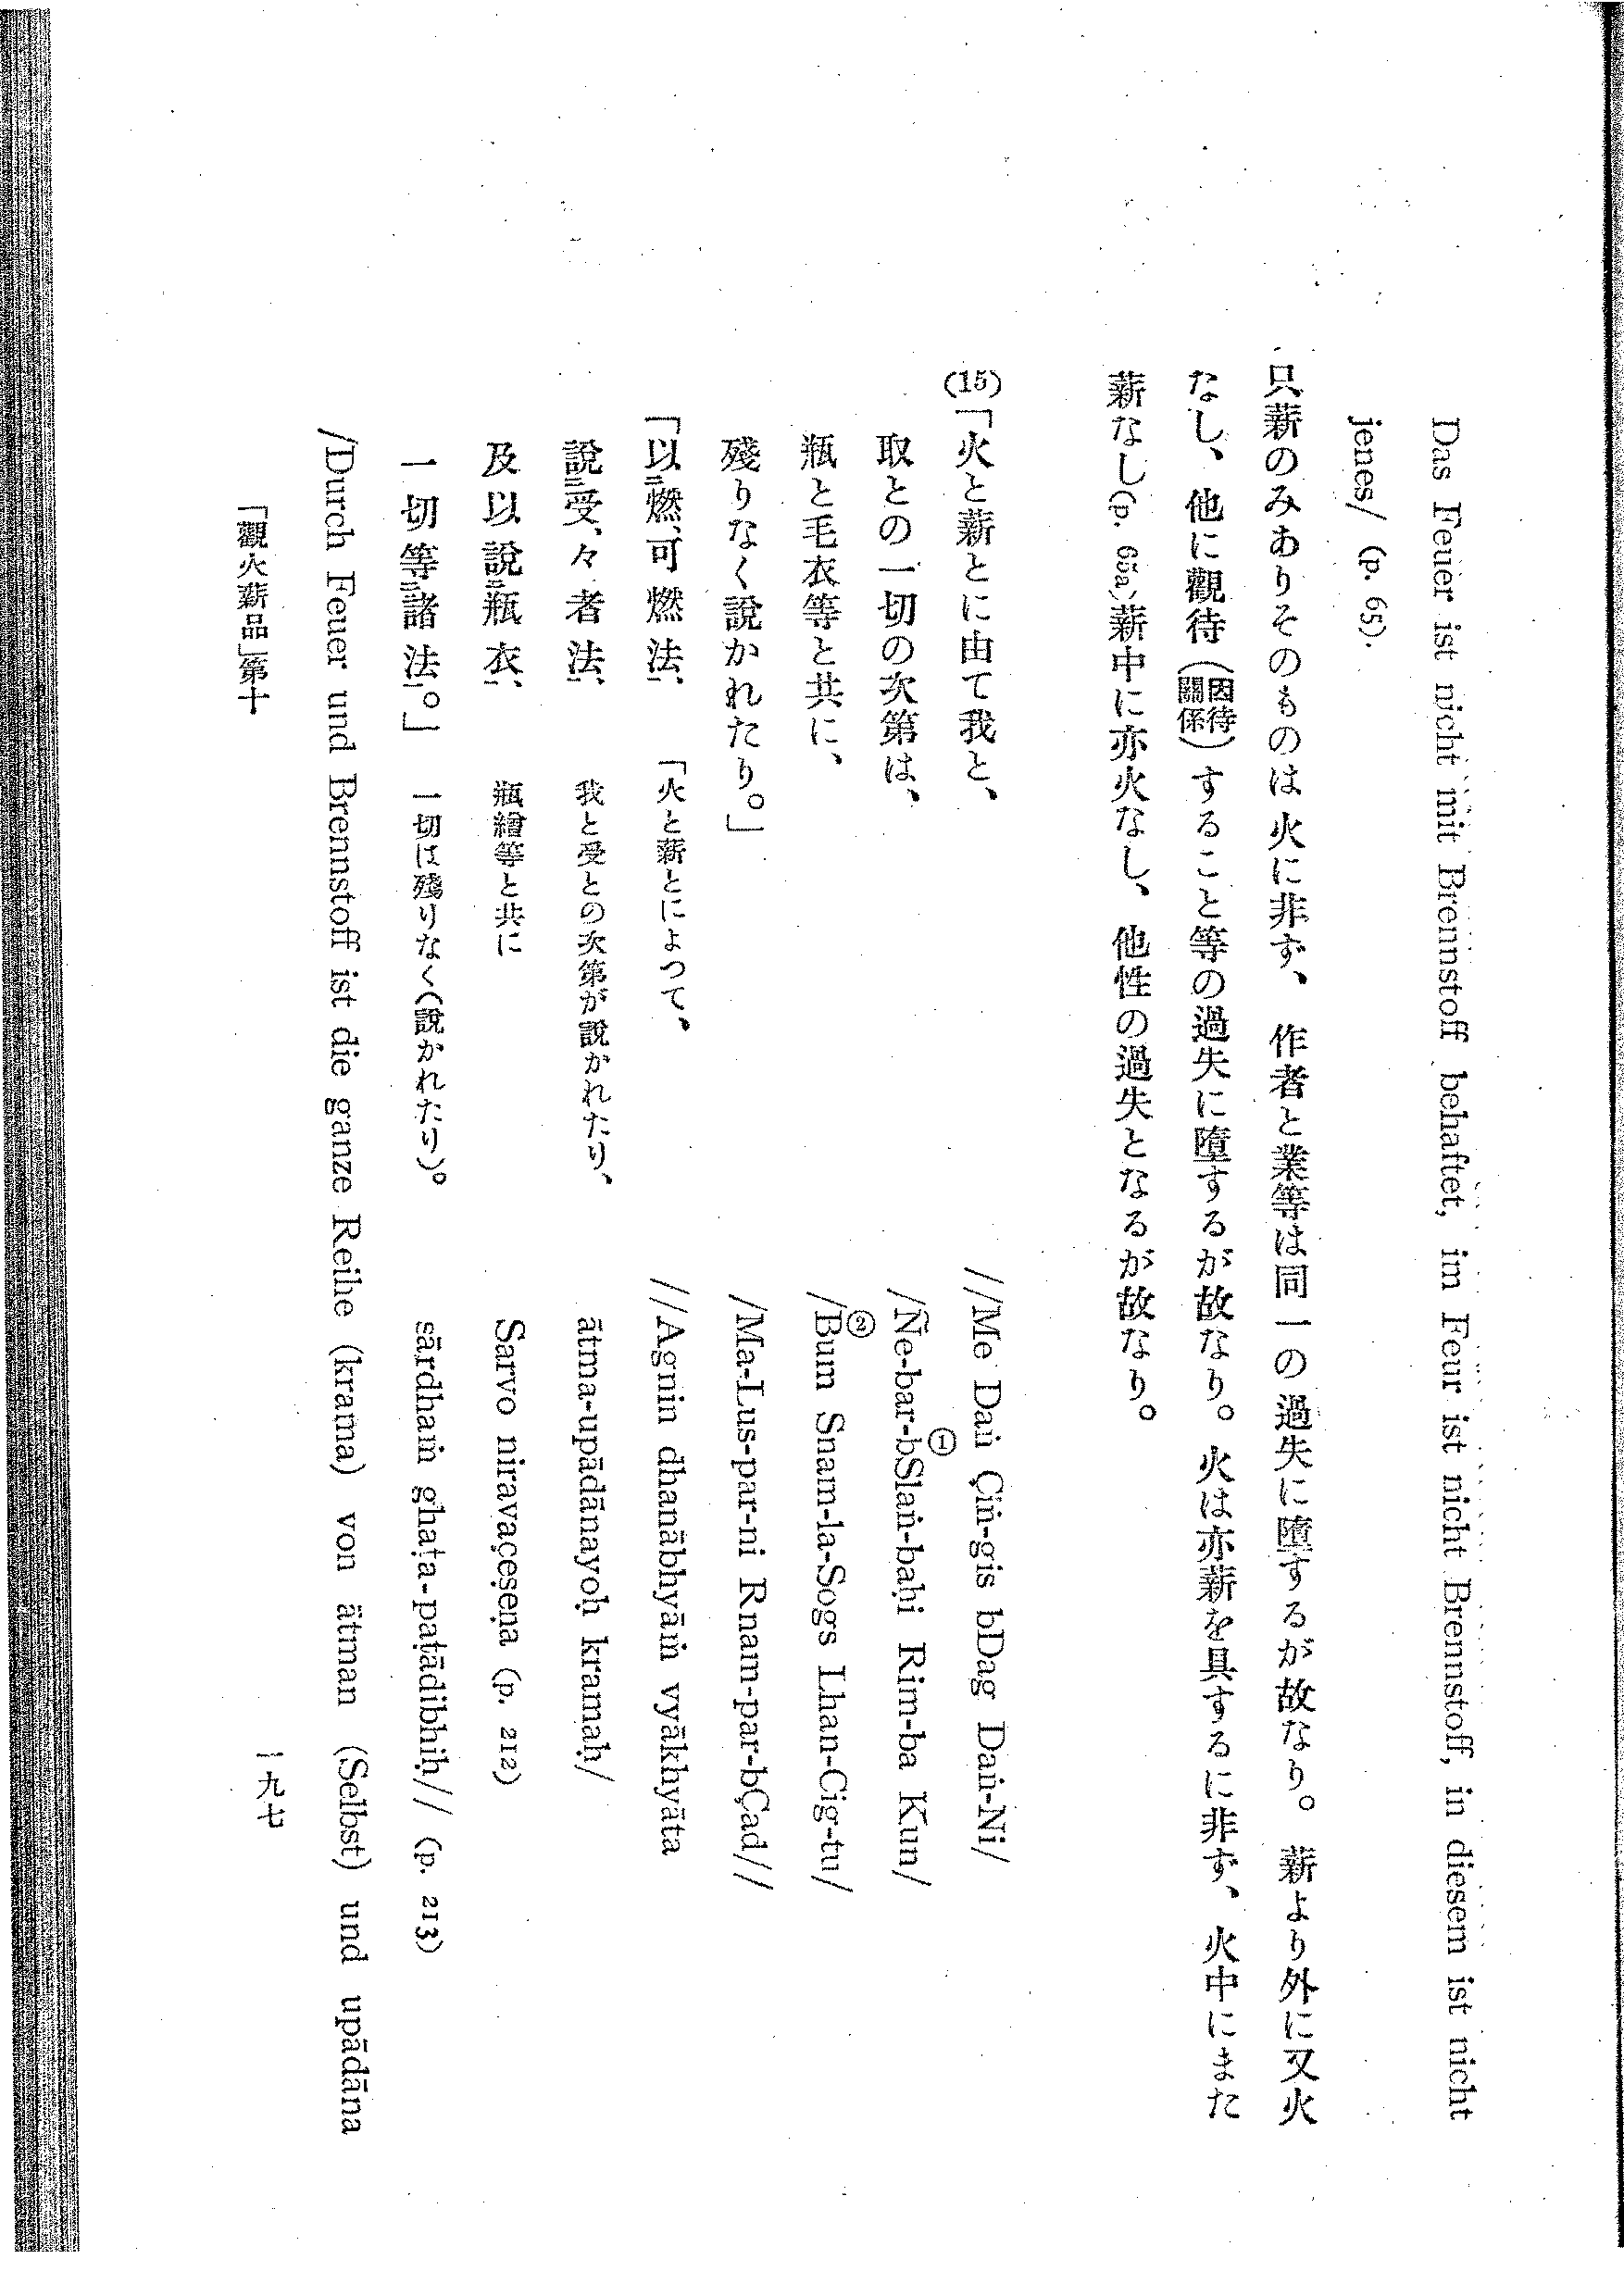 Das Feuer ist nicht mit Brennstoff behaftet, im Feur ist nicht Brennstoff, in diesem ist nicht
jenes/ (p. 65).
只薪のみありそのものは火に非ず、作者と業等は同一の過失に堕するが故なり。薪より外に又火
なし、他に觀待(因待關係)すること等の過失に堕するが故なり。火は亦薪を具するに非ず、火中にまた
薪なし(p. 65a)、薪中に亦火なし、他性の過失となるが故なり。
(15)「火と薪とに由て我と、 //Me Daṅ Çiṅ-gis bDag Daṅ-Ni/
取との一切の次第は、 /Ñe-bar-bSlaṅ-baḥi ① Rim-ba Kun/
瓶と毛衣等と共に、 /Bum ② Snam-la-Sogs Lhan-Cig-tu/
殘りなく說かれたり。」 /Ma-Lus-par-ni Rnam-par-bÇad//
「以燃、可燃法、 「火と薪とによつて、 //Agnin dhanābhyāṁ vyākhyāta
說受、々者法、 我と受との次第が說かれたり、 ātma-upādānayoḥ kramaḥ/
及以說瓶衣、 瓶繪等と共に Sarvo niravaçeṣeṇa (p. 212)
一切等諸法。」 一切は殘りなく(說かれたり)。 sārdhaṁ ghaṭa-paṭādibhiḥ// (p. 213)
/Durch Feuer und Brennstoff ist die ganze Reihe (krama) von ātman (Selbst) und upādāna
「觀火薪品」第十
一九七